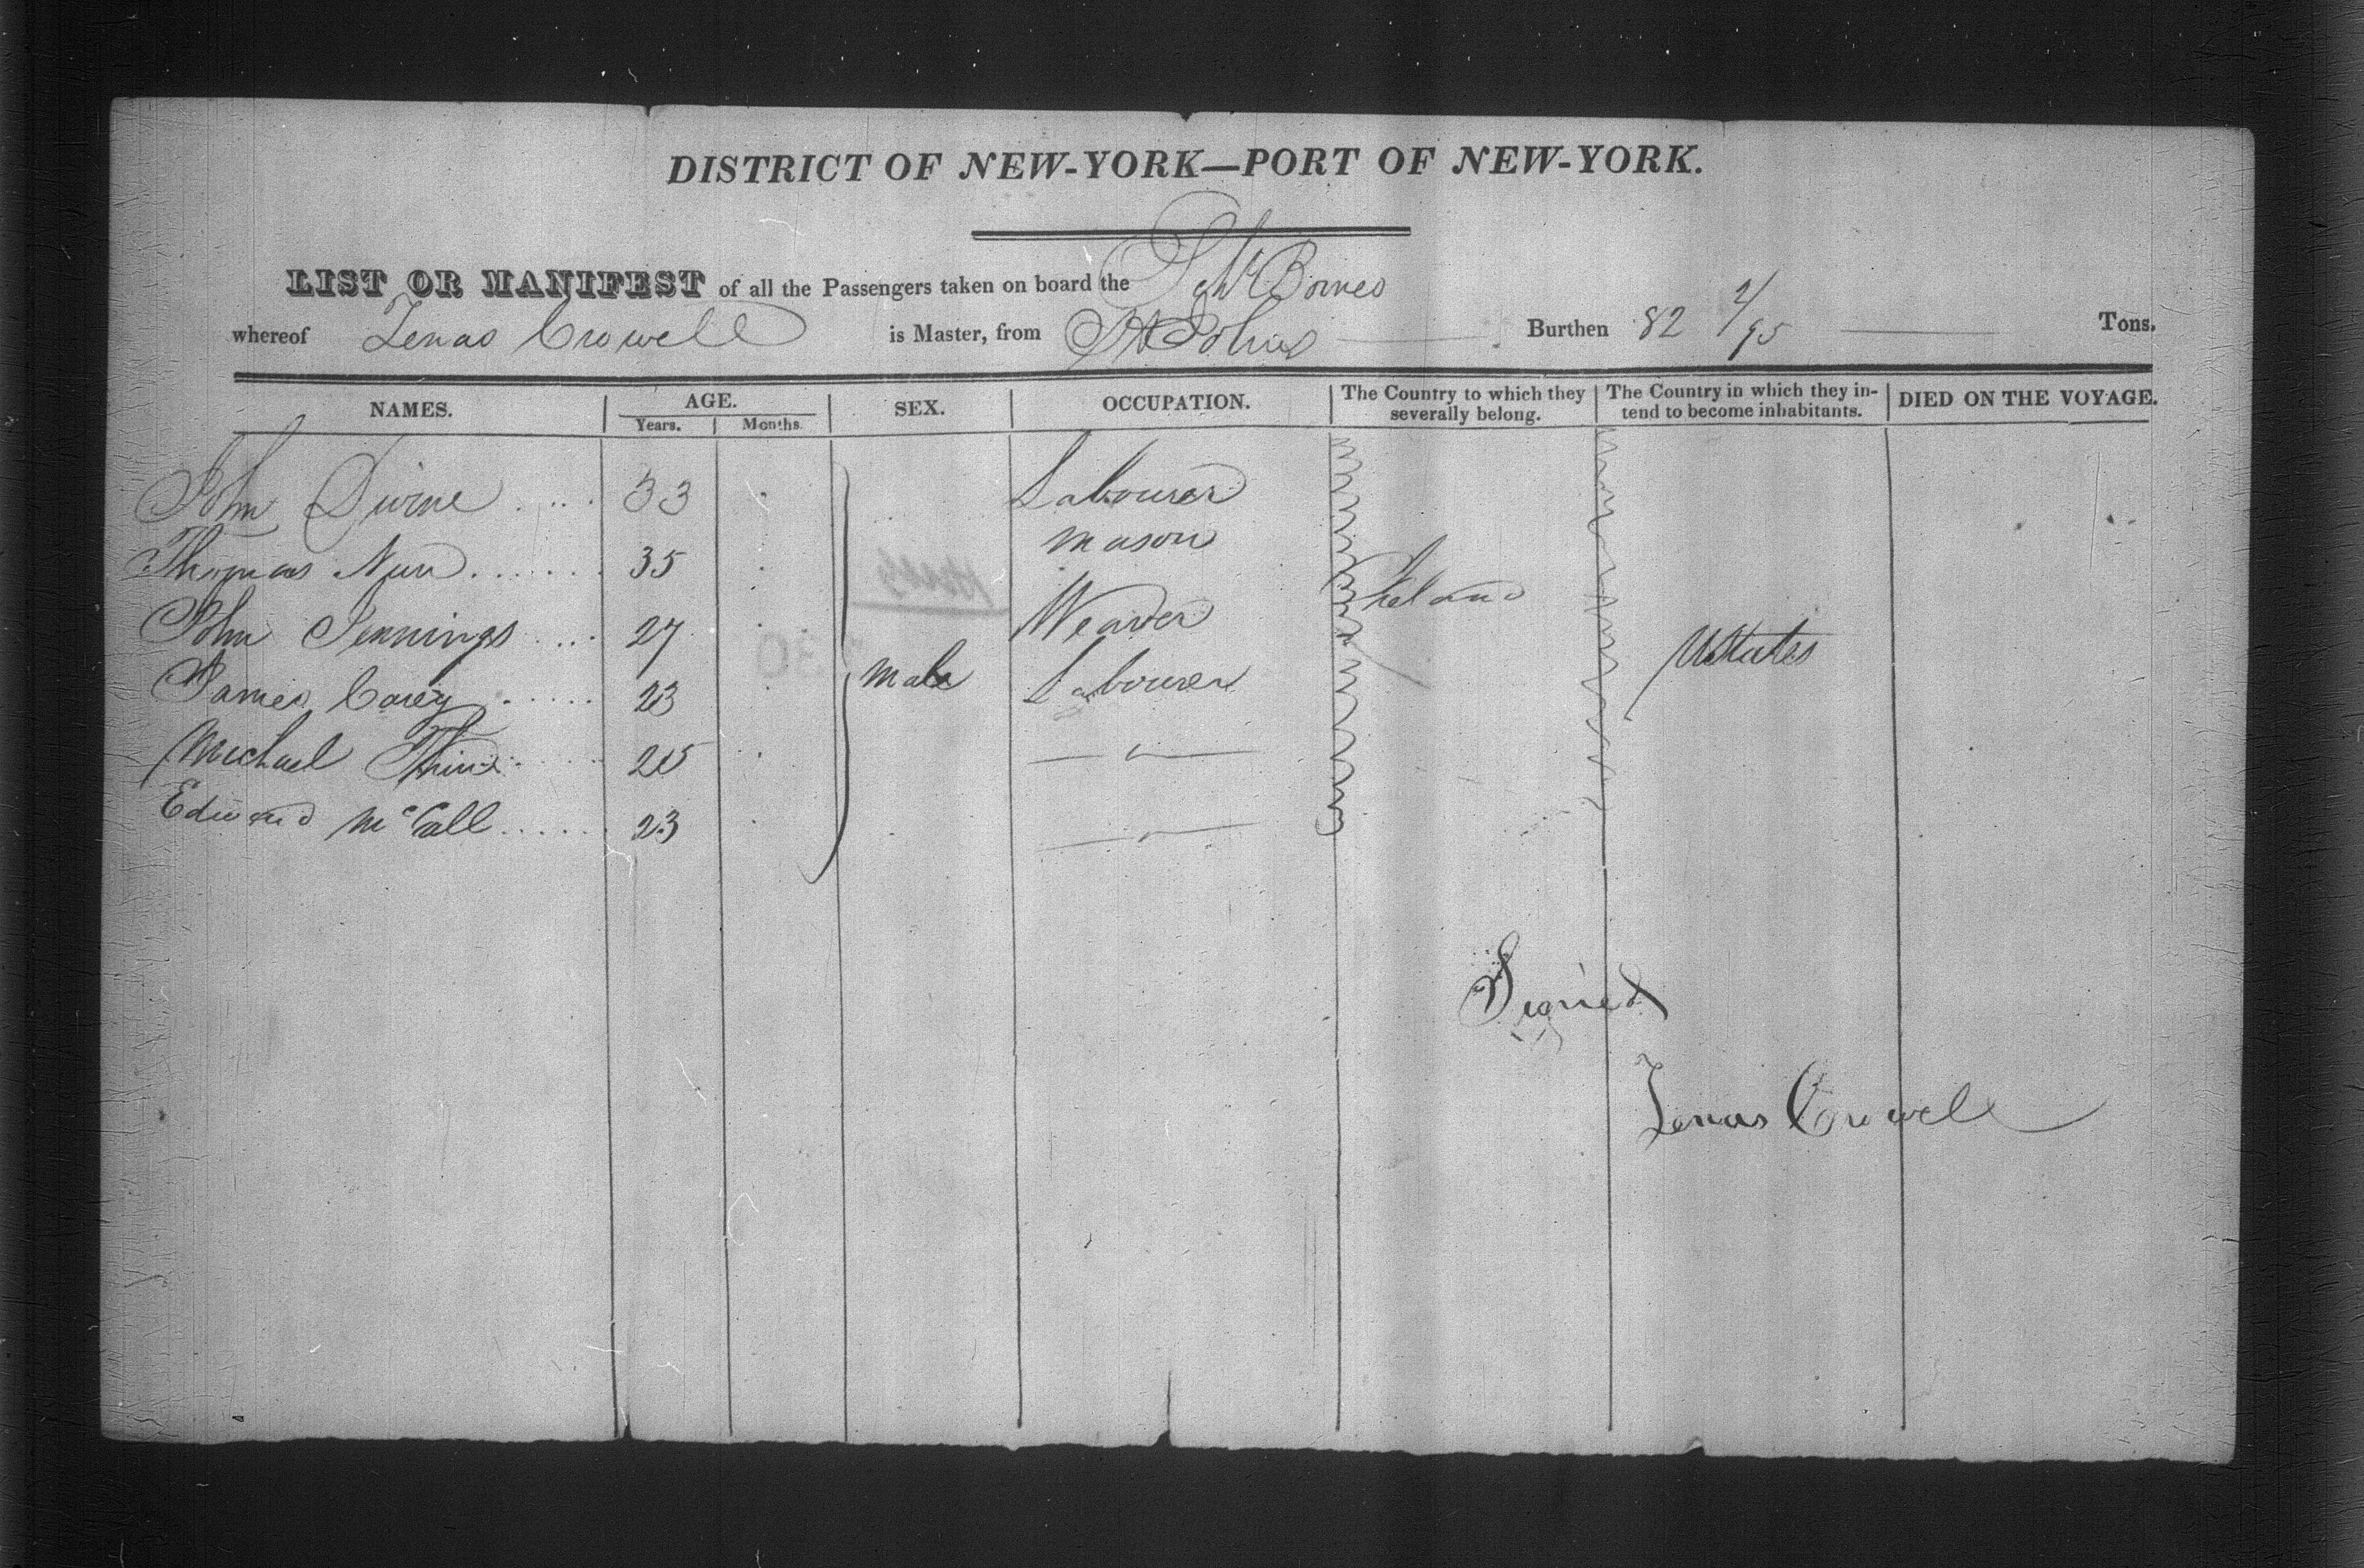 DISTRICT OF NEW-YORK—PORT OF NEW-YORK.
LIST OR MANIFEST of all the Passengers taken on board the Schr Borneo
whereof Zenas Crowell is Master, from St Johns Burthen 82 /95 Tons.
NAMES. AGE. SEX. OCCUPATION. The Country to which they severally belong. The Country in which they in-tend to become inhabitants. DIED ON THE VOYAGE.
Years. Months.
John Divine 33 Labourer
Thomas Nunn 35 Mason
John Jennings 27 Weaver Ireland
James Carey 23 Male Labourer UStates
Michael 25 — " —
Edward McCall 23 — " —
Signed
Zenas Crowell